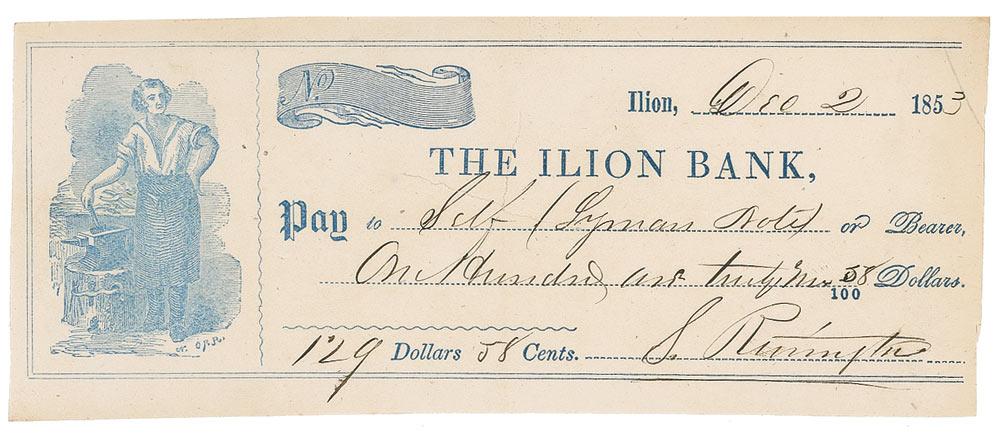 No.
Ilion, Dec 2 1853
THE ILION BANK,
Pay to Self (Lyman Note) or Bearer,
One Hundred and twenty nine 58/100 Dollars.
129 Dollars 58 Cents. S. Remington
N. ORR.